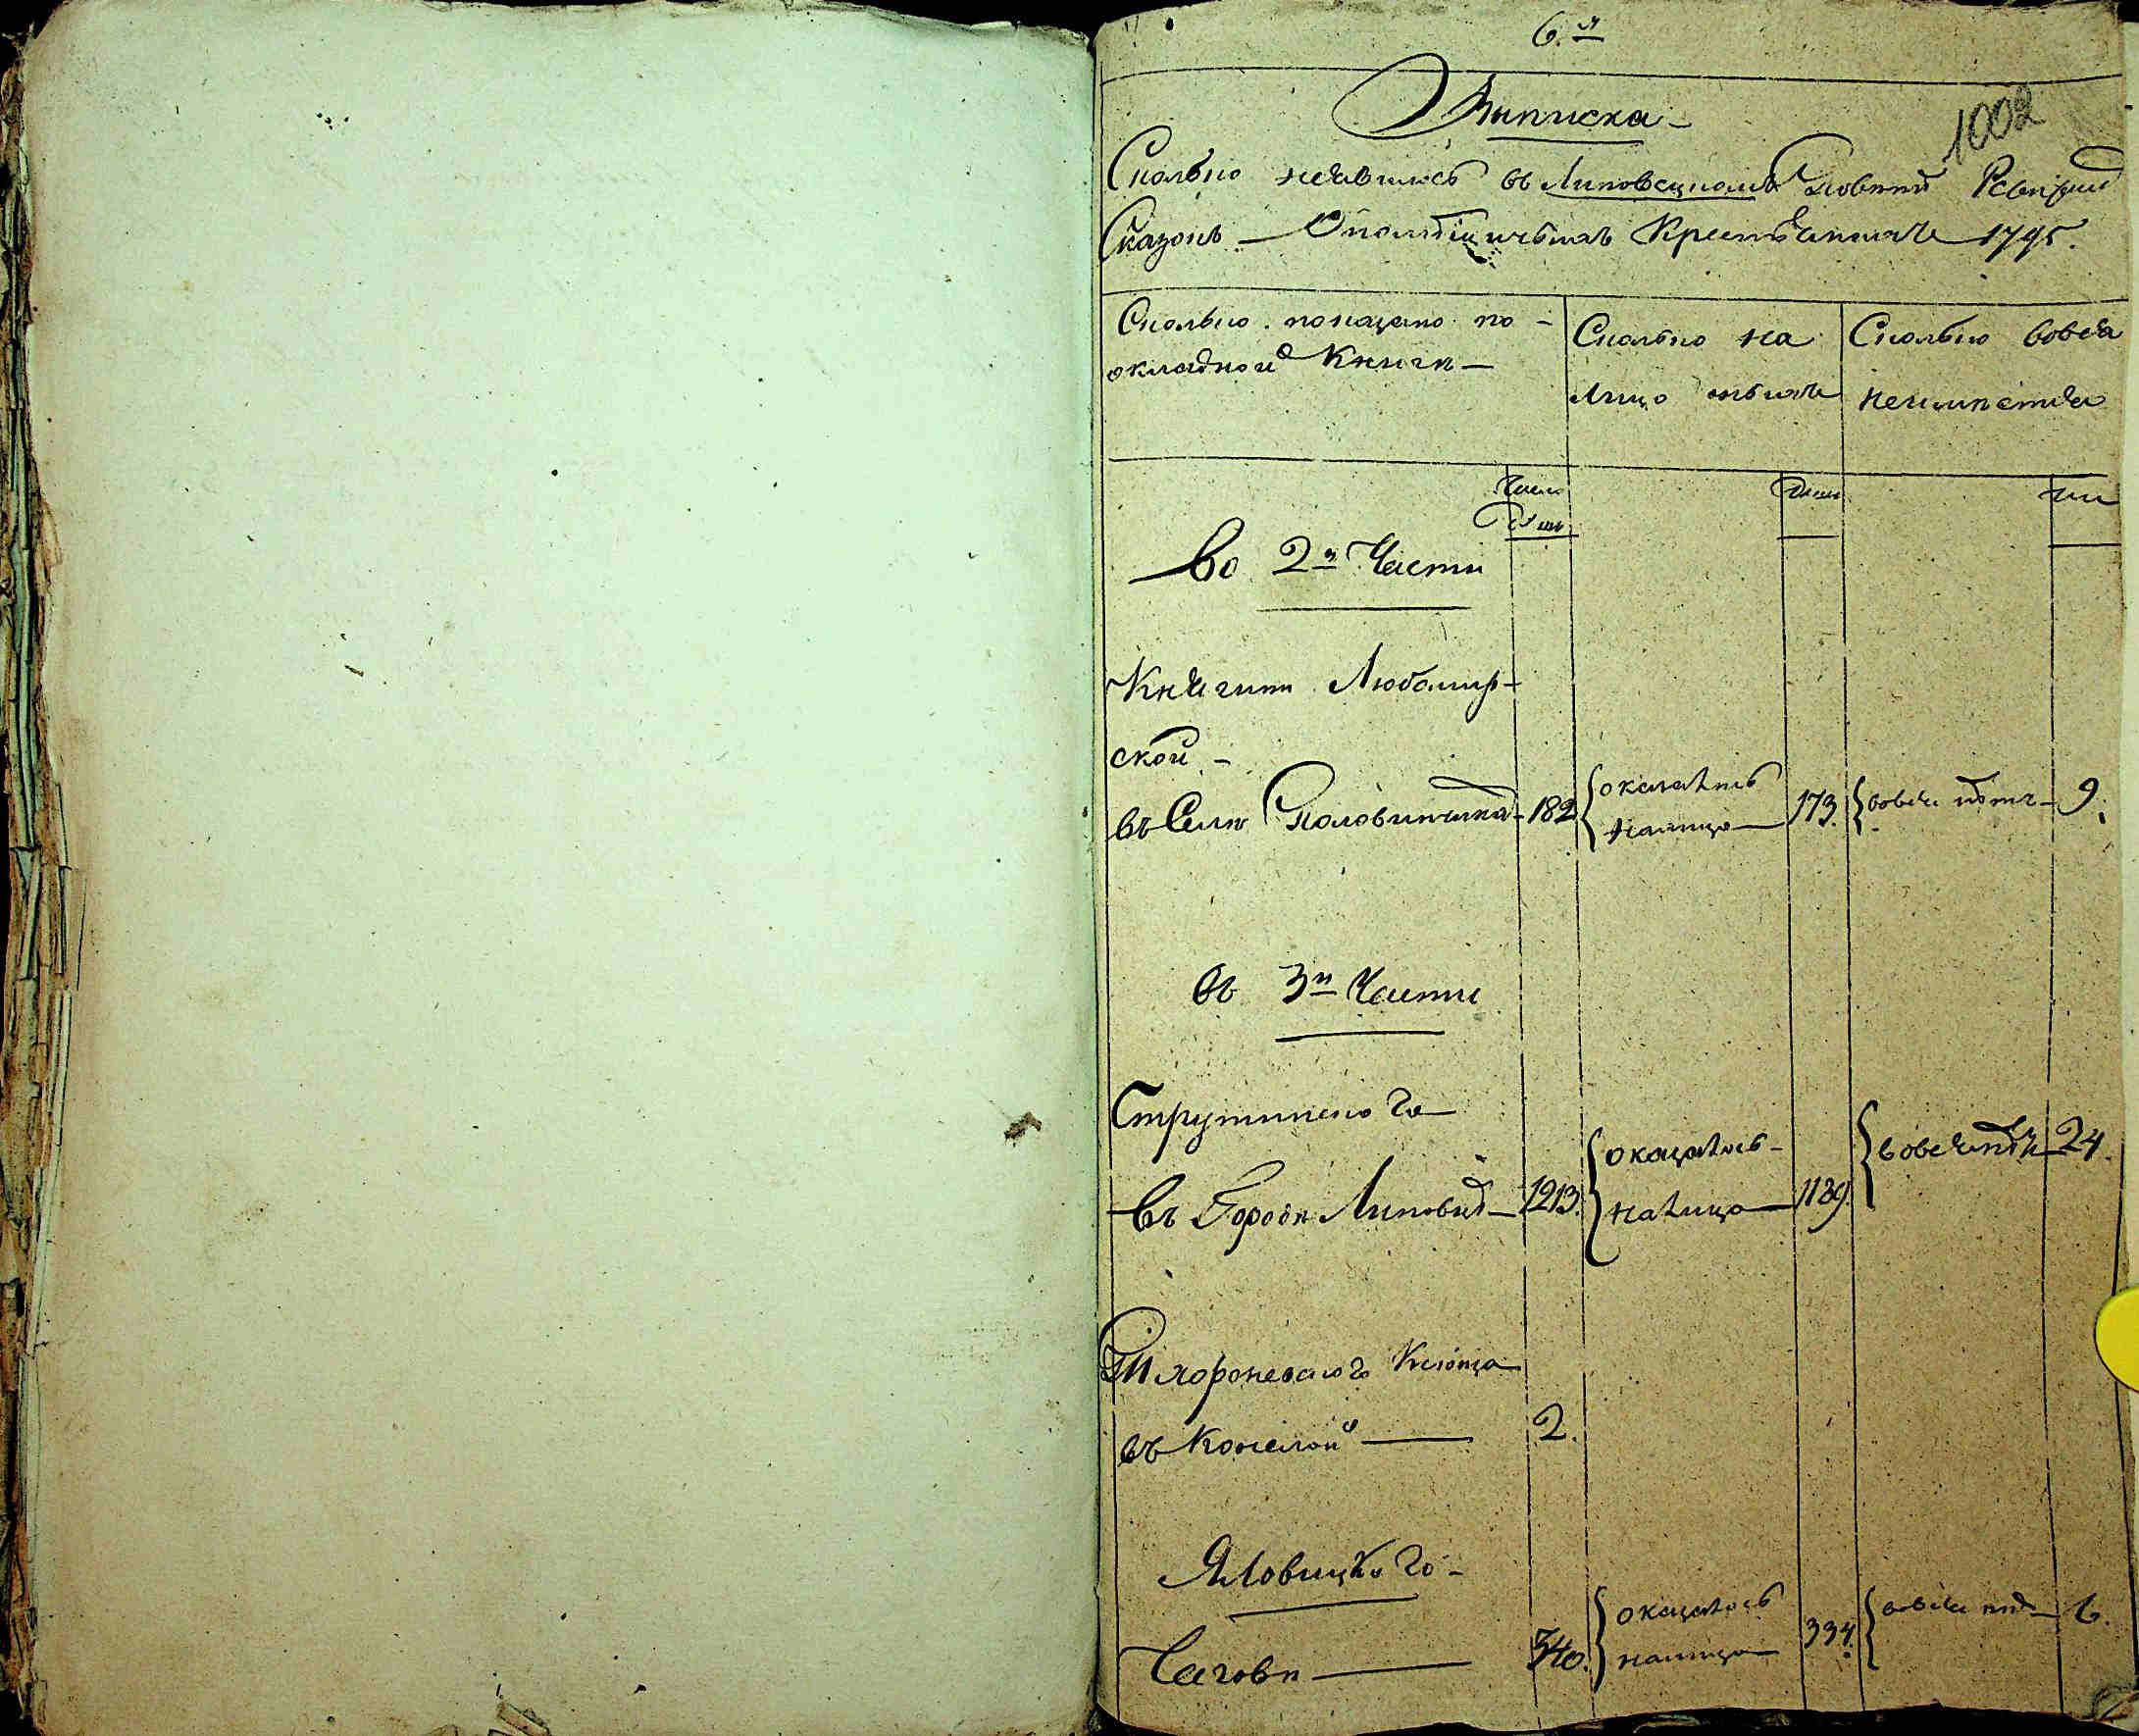 6.я
Выписка
1002
Сколько неявилось въ Липовецкомъ Повете Ревизкий
Сказокъ — О помѣщичьихъ Крестьянахъ 1795.
Сколько показано по
окладной Книги —
Сколько на
лицо оныхъ
Сколько вовся
неимѣется
Число
Душъ
Во 2й Части
Княгини Любомир-
ской —
въ Селе Половинчика — 182
оказалось
налицо — 173.
вовся нетъ — 9.
въ 3й Части
Струтинского
въ Городе Липовце — 1213.
оказалось —
налицо — 1189.
вовся нетъ — 24.
Ксіонца
въ Конелой — 2.
Яловицкого —
Чагове — 340.
оказалось
налицо — 334.
вовся нетъ — 6.